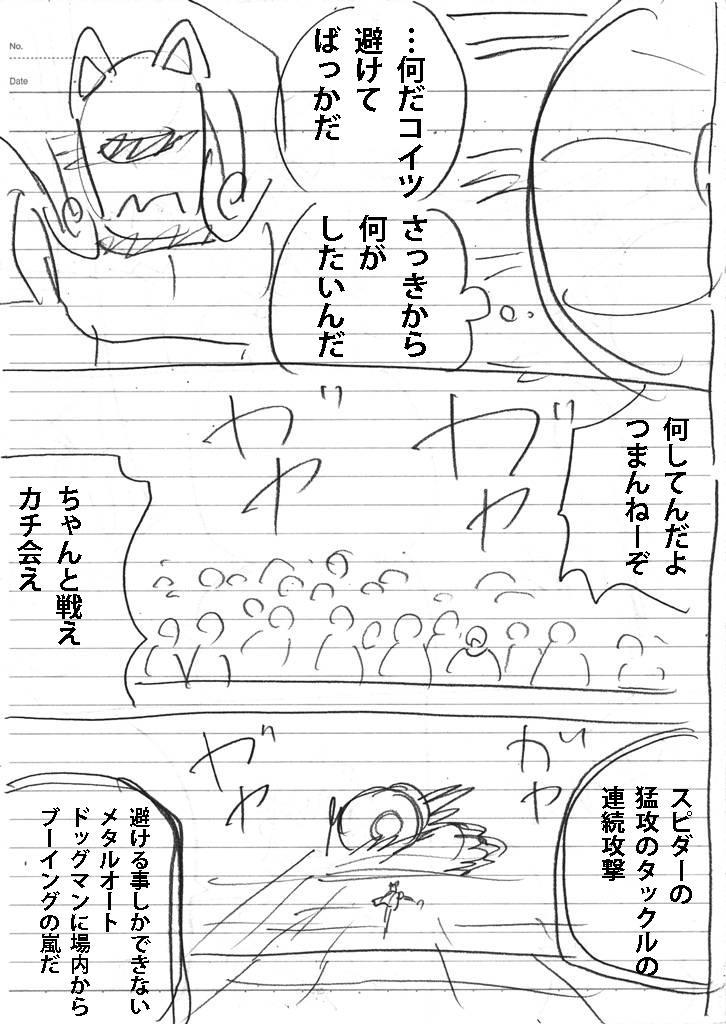 No.
Date
…何だコイツ
避けて
ばっかだ
さっきから
何が
したいんだ
何してんだよ
つまんねーぞ
ガヤ
ガヤ
ちゃんと戦え
カチ会え
スピダーの
猛攻のタックルの
連続攻撃
ガヤ
ガヤ
避ける事しかできない
メタルオート
ドッグマンに場内から
ブーイングの嵐だ